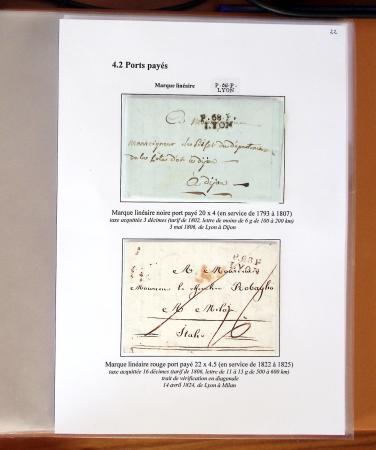 22
4.2 Ports payés
Marque linéaire
P.68.P.
LYON
P.68.P.
LYON
A
monsieur le préfet du département
de la Côte d'or à dijon
à dijon
Marque linéaire noire port payé 20 x 4 (en service de 1793 à 1807)
taxe acquittée 3 décimes (tarif de 1802, lettre de moins de 6 g de 100 à 200 km)
3 mai 1806, de Lyon à Dijon
P.68.P
LYON
A Monsieur
Monsieur le Robaglio
A Milan
Italie
Marque linéaire rouge port payé 22 x 4.5 (en service de 1822 à 1825)
taxe acquittée 16 décimes (tarif de 1806, lettre de 11 à 15 g de 500 à 600 km)
trait de vérification en diagonale
14 avril 1824, de Lyon à Milan